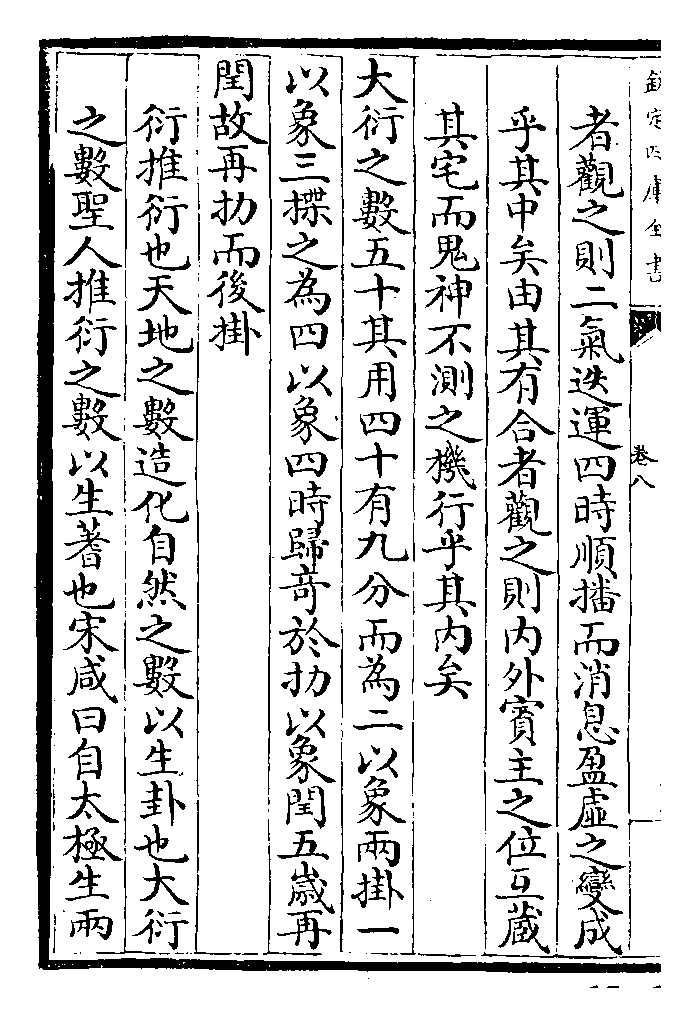 欽定四庫全書
卷八
者觀之則二氣迭運四時順播而消息盈虛之變成
乎其中矣由其有合者觀之則内外賓主之位互蔵
其宅而鬼神不測之機行乎其内矣
大衍之數五十其用四十有九分而為二以象兩掛一
以象三揲之為四以象四時歸竒於扐以象閏五嵗再
閏故再扐而後掛
衍推衍也天地之數造化自然之數以生卦也大衍
之數聖人推衍之數以生蓍也宋咸曰自太極生兩